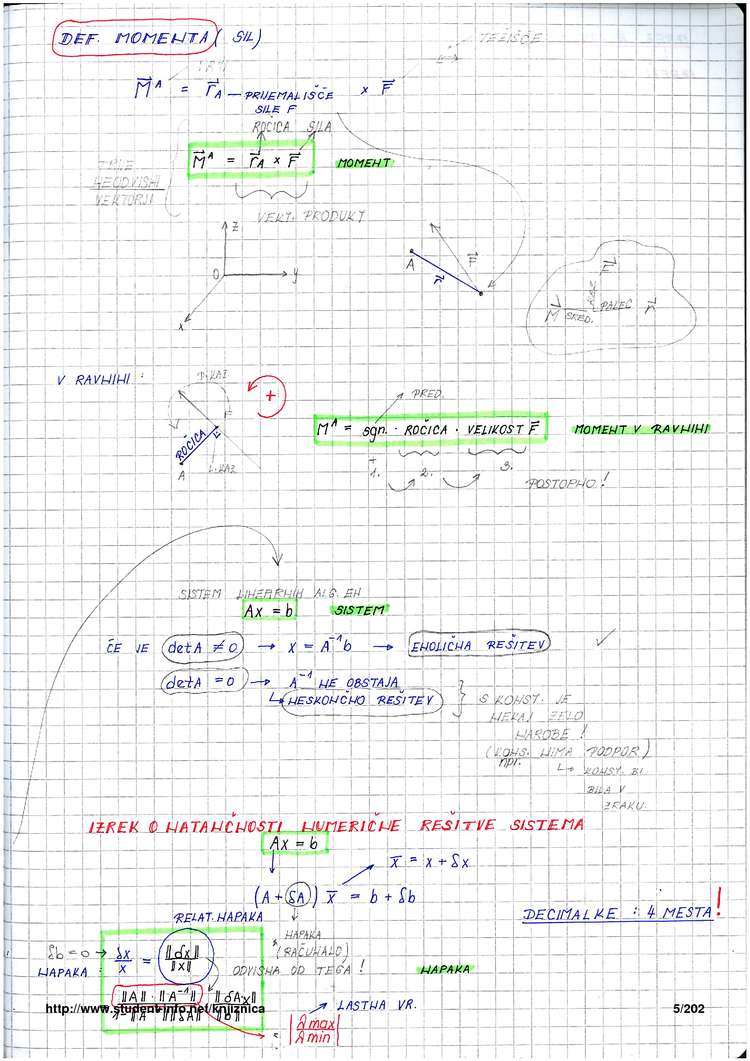 DEF. MOMENTA ( SIL )
TEŽIŠČE
M⃗ᴬ = r⃗A — PRIJEMALIŠČE SILE F × F⃗
ROČICA SILA
M⃗ᴬ = r⃗A × F⃗ MOMENT
TRIJE
NEODVISNI
VEKTORJI
VEKT. PRODUKT
z
O
y
x
A
r⃗
F⃗
F⃗
M⃗ SRED. PALEC r⃗
V RAVNINI :
P. KAZ.
+
F
ROČICA
A
L. KAZ.
PRED.
Mᴬ = sgn. · ROČICA · VELIKOST F⃗ MOMENT V RAVNINI
+
1. 2. 3.
POSTOPNO !
SISTEM LINEARNIH ALG. EN
Ax = b SISTEM
ČE JE detA ≠ 0 → x = A⁻¹b → ENOLIČNA REŠITEV ✓
detA = 0 → A⁻¹ NE OBSTAJA
↳ NESKONČNO REŠITEV
S KONST. JE
NEKAJ ZELO
NAROBE !
( KONS. NIMA PODPOR )
npr.
↳ KONST. BI
BILA V
ZRAKU.
IZREK O NATANČNOSTI NUMERIČNE REŠITVE SISTEMA
Ax = b
x̄ = x + δx
(A + δA) x̄ = b + δb
RELAT. NAPAKA
DECIMALKE : 4 MESTA !
NAPAKA
(RAČUNALO)
δb = 0 → δx/x = ‖δx‖/‖x‖
NAPAKA :
ODVISNA OD TEGA !
NAPAKA
‖A‖ · ‖A⁻¹‖ ‖δAx‖
LASTNA VR.
http://www.student-info.net/knjiznica
5/202
= |λmax/λmin|